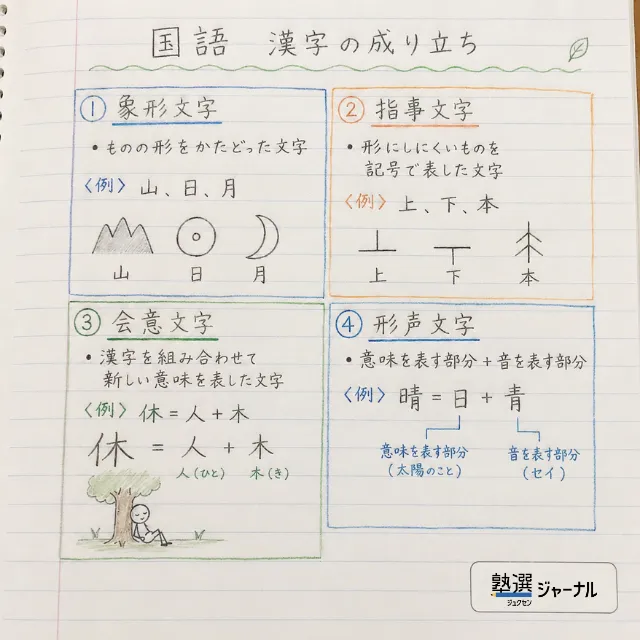 国語 漢字の成り立ち
① 象形文字
・ものの形をかたどった文字
〈例〉山、日、月
山 日 月
② 指事文字
・形にしにくいものを
記号で表した文字
〈例〉上、下、本
上 下 本
③ 会意文字
・漢字を組み合わせて
新しい意味を表した文字
〈例〉休=人+木
休 = 人 + 木
人(ひと) 木(き)
④ 形声文字
・意味を表す部分+音を表す部分
〈例〉晴=日+青
意味を表す部分 音を表す部分
(太陽のこと) (セイ)
塾選ジャーナル
ジュクセン